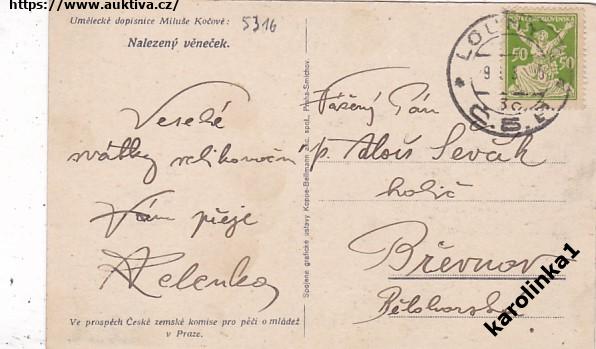 https://www.auktiva.cz/
Umělecké dopisnice Miluše Kočové:
Nalezený věneček.
5316
Veselé
svátky velikonoční
Vám přeje
Helenka
Ve prospěch České zemské komise pro péči o mládež
v Praze.
Spojené grafické ústavy Koppe-Bellmann a.s. spol., Praha-Smíchov.
50 50
Vážený Pán
p. Alois Ševčík
holič
Břevnov
Bělohorská
karolinka1